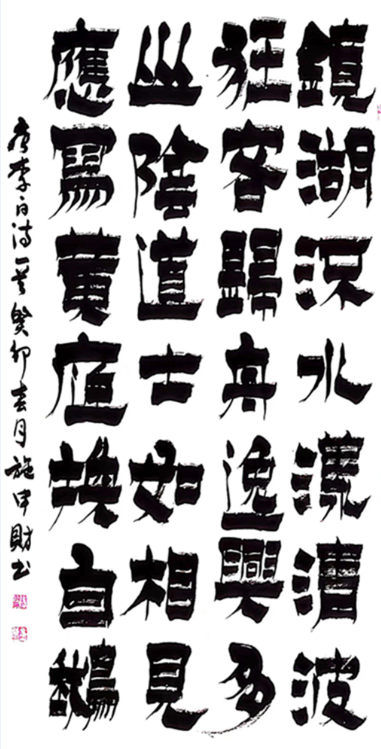 鏡湖流水漾清波
狂客歸舟逸興多
山陰道士如相見
應寫黃庭換白鵝
唐李白詩一首癸卯春月施中財书